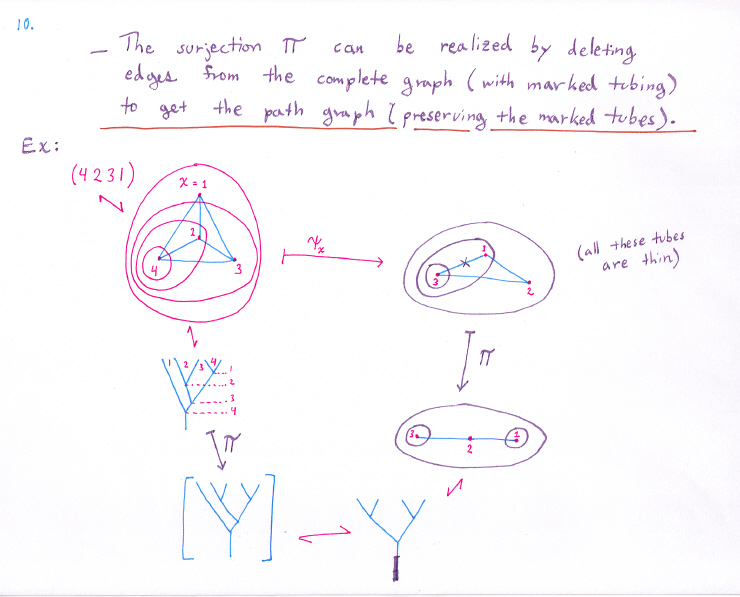 10.
– The surjection π can be realized by deleting
edges from the complete graph (with marked tubing)
to get the path graph (preserving the marked tubes).
Ex:
(4231)
x = 1
2
4
3
ψx
1
3
x
2
(all these tubes
are thin)
1 2 3 4
1
2
3
4
π
π
3
2
1